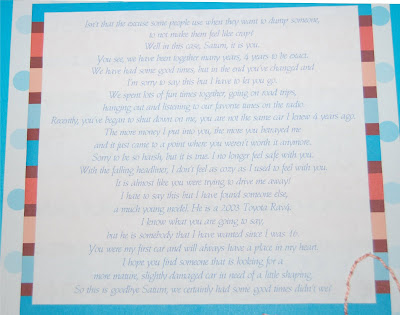 Isn't that the excuse some people use when they want to dump someone,
to not make them feel like crap?
Well in this case, Saturn, it is you.
You see, we have been together many years, 4 years to be exact.
We have had some good times, but in the end you've changed and
I'm sorry to say this but I have to let you go.
We spent lots of fun times together, going on road trips,
hanging out and listening to our favorite tunes on the radio.
Recently, you've began to shut down on me, you are not the same car I knew 4 years ago.
The more money I put into you, the more you betrayed me
and it just came to a point where you weren't worth it anymore.
Sorry to be so harsh, but it is true. I no longer feel safe with you.
With the falling headliner, I don't feel as cozy as I used to feel with you.
It is almost like you were trying to drive me away!
I hate to say this but I have found someone else,
a much young model. He is a 2003 Toyota Rav4.
I know what you are going to say,
but he is somebody that I have wanted since I was 16.
You were my first car and will always have a place in my heart.
I hope you find someone that is looking for a
more mature, slightly damaged car in need of a little shaping.
So this is goodbye Saturn, we certainly had some good times didn't we?